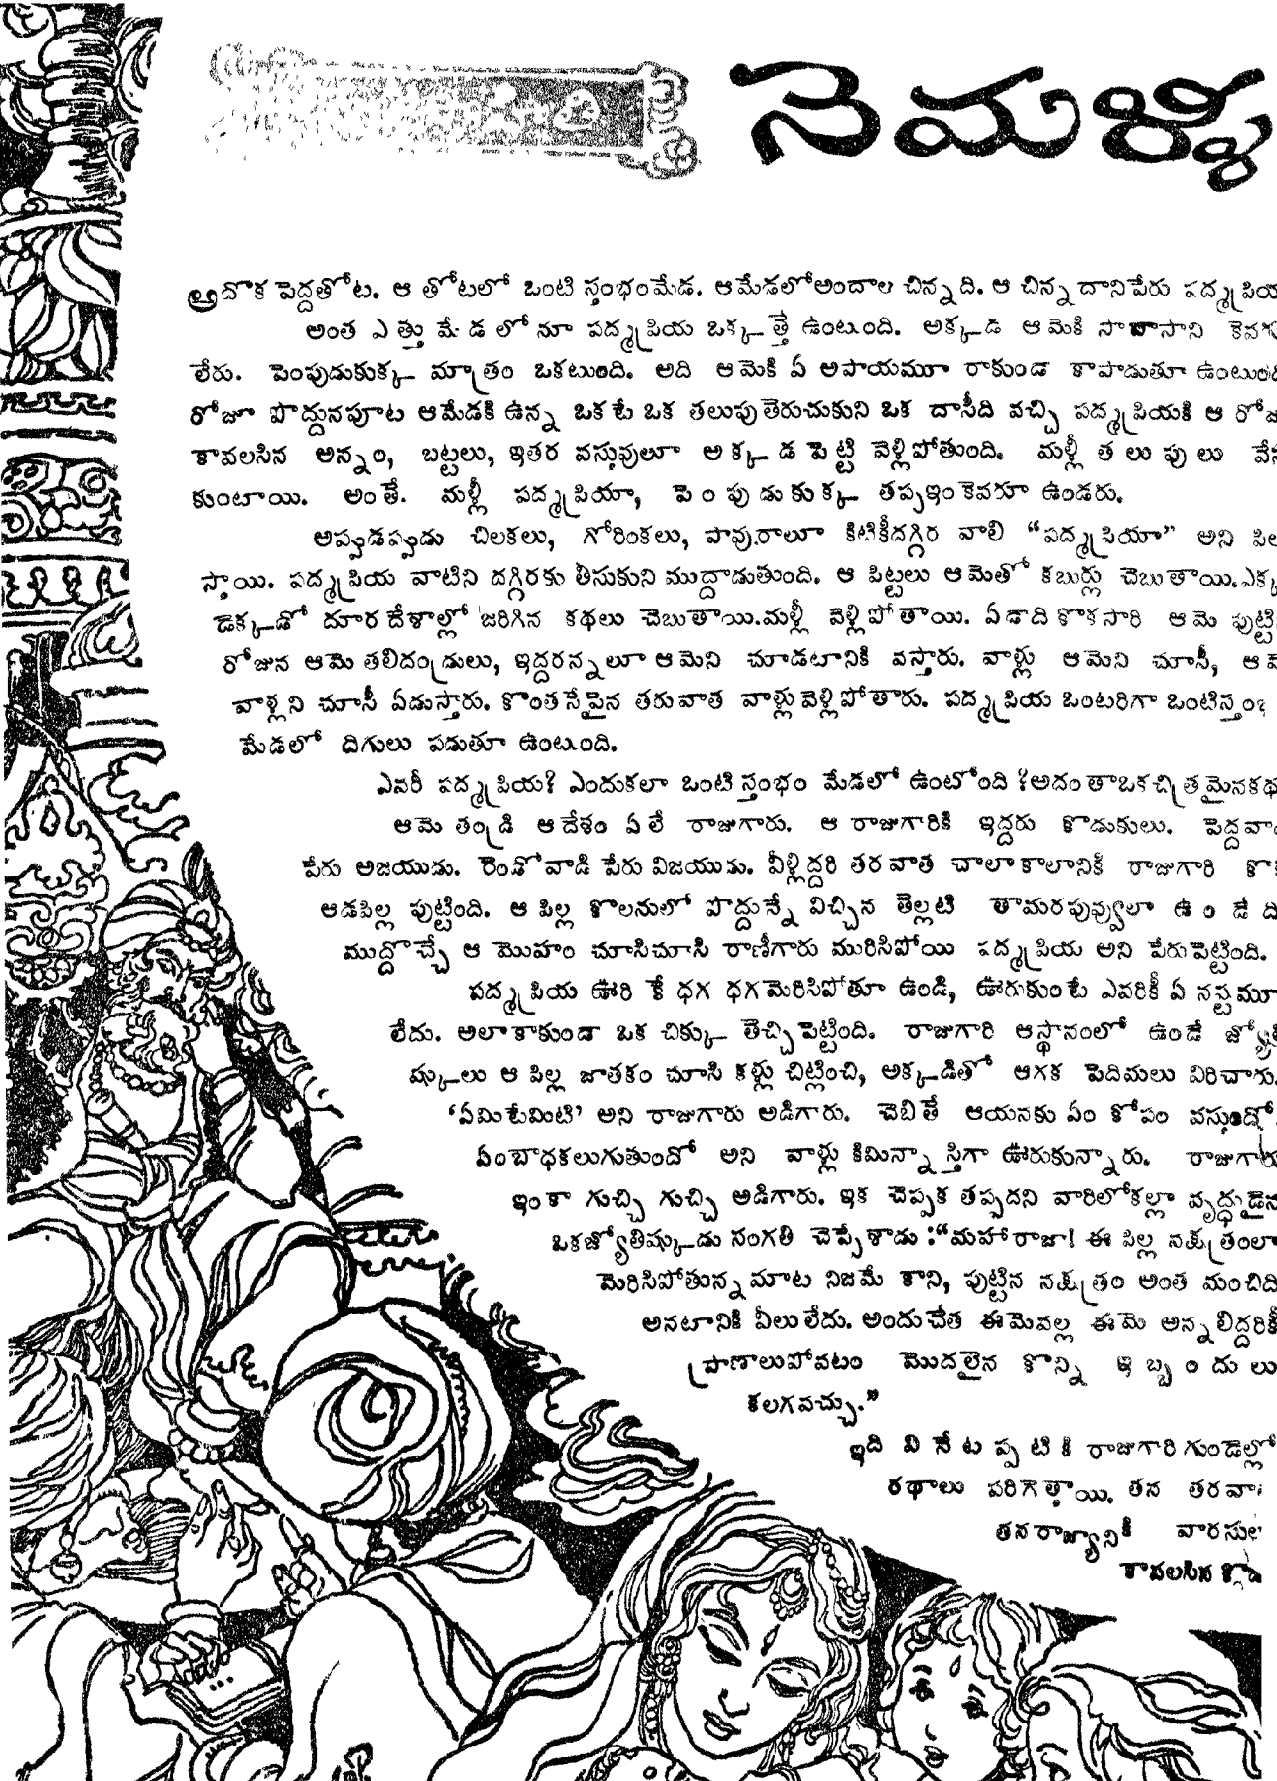 నెమళ్ళ
అదొక పెద్దతోట. ఆ తోటలో ఒంటి స్తంభంమేడ. ఆమేడలోఅందాల చిన్నది. ఆ చిన్నదానిపేరు పద్మప్రియ
అంత ఎత్తు మేడలోనూ పద్మప్రియ ఒక్కత్తే ఉంటుంది. అక్కడ ఆమెకి సావాసాని కెవరూ
లేరు. పెంపుడుకుక్క మాత్రం ఒకటుంది. అది ఆమెకి ఏ అపాయమూ రాకుండా కాపాడుతూ ఉంటుంది
రోజూ పొద్దునపూట ఆమేడకి ఉన్న ఒకటే ఒక తలుపుతెరుచుకుని ఒక దాసీది వచ్చి పద్మప్రియకి ఆ రోజు
కావలసిన అన్నం, బట్టలు, ఇతర వస్తువులూ అక్కడ పెట్టి వెళ్లిపోతుంది. మళ్లీ తలుపులు వేసు
కుంటాయి. అంతే. మళ్లీ పద్మప్రియా, పెంపుడుకుక్క తప్పఇంకెవరూ ఉండరు.
అప్పుడప్పుడు చిలకలు, గోరింకలు, పావురాలూ కిటికీదగ్గిర వాలి “పద్మప్రియా” అని పిల
స్తాయి. పద్మప్రియ వాటిని దగ్గిరకు తీసుకుని ముద్దాడుతుంది. ఆ పిట్టలు ఆమెతో కబుర్లు చెబుతాయి.ఎక్క
డెక్కడో దూరదేశాల్లో జరిగిన కథలు చెబుతాయి.మళ్లీ వెళ్లిపోతాయి. ఏడాదికొకసారి ఆమె పుట్టి
రోజున ఆమె తలిదండ్రులు, ఇద్దరన్నలూ ఆమెని చూడటానికి వస్తారు. వాళ్లు ఆమెని చూసీ, ఆమె
వాళ్లని చూసీ ఏడుస్తారు. కొంతసేపైన తరువాత వాళ్లువెళ్లిపోతారు. పద్మప్రియ ఒంటరిగా ఒంటిస్తంభ
మేడలో దిగులు పడుతూ ఉంటుంది.
ఎవరీ పద్మప్రియ? ఎందుకలా ఒంటి స్తంభం మేడలో ఉంటోంది ?అదంతాఒకచిత్రమైనకథ
ఆమె తండ్రి ఆదేశం ఏలే రాజుగారు. ఆ రాజుగారికి ఇద్దరు కొడుకులు. పెద్దవా
పేరు అజయుడు. రెండోవాడి పేరు విజయుడు. వీళ్లిద్దరి తరవాత చాలాకాలానికి రాజుగారి కొక
ఆడపిల్ల పుట్టింది. ఆ పిల్ల కొలనులో పొద్దున్నే విచ్చిన తెల్లటి తామరపువ్వులా ఉండేది
ముద్దొచ్చే ఆ మొహం చూసిచూసి రాణీగారు మురిసిపోయి పద్మప్రియ అని పేరుపెట్టింది.
పద్మప్రియ ఊరికే ధగ ధగమెరిసిపోతూ ఉండి, ఊరుకుంటే ఎవరికీ ఏ నష్టమూ
లేదు. అలాకాకుండా ఒక చిక్కు తెచ్చిపెట్టింది. రాజుగారి ఆస్థానంలో ఉండే జ్యోతి
ష్కులు ఆ పిల్ల జాతకం చూసి కళ్లు చిట్లించి, అక్కడితో ఆగక పెదిమలు విరిచారు.
‘ఏమిటేమిటి’ అని రాజుగారు అడిగారు. చెబితే ఆయనకు ఏం కోపం వస్తుందో,
ఏంబాధకలుగుతుందో అని వాళ్లు కిమిన్నాస్తిగా ఊరుకున్నారు. రాజుగారు
ఇంకా గుచ్చి గుచ్చి అడిగారు. ఇక చెప్పక తప్పదని వారిలోకల్లా వృద్ధుడైన
ఒకజ్యోతిష్కుడు సంగతి చెప్పేశాడు :“మహారాజా! ఈ పిల్ల నక్షత్రంలా
మెరిసిపోతున్నమాట నిజమే కాని, పుట్టిన నక్షత్రం అంత మంచిది
అనటానికి వీలులేదు. అందుచేత ఈమెవల్ల ఈమె అన్నలిద్దరికీ
ప్రాణాలుపోవటం మొదలైన కొన్ని ఇబ్బందులు
కలగవచ్చు.”
ఇది వినేటప్పటికి రాజుగారిగుండెల్లో
రథాలు పరిగెత్తాయి. తన తరవా
తనరాజ్యానికి వారసుల
కావలసిన కొడ